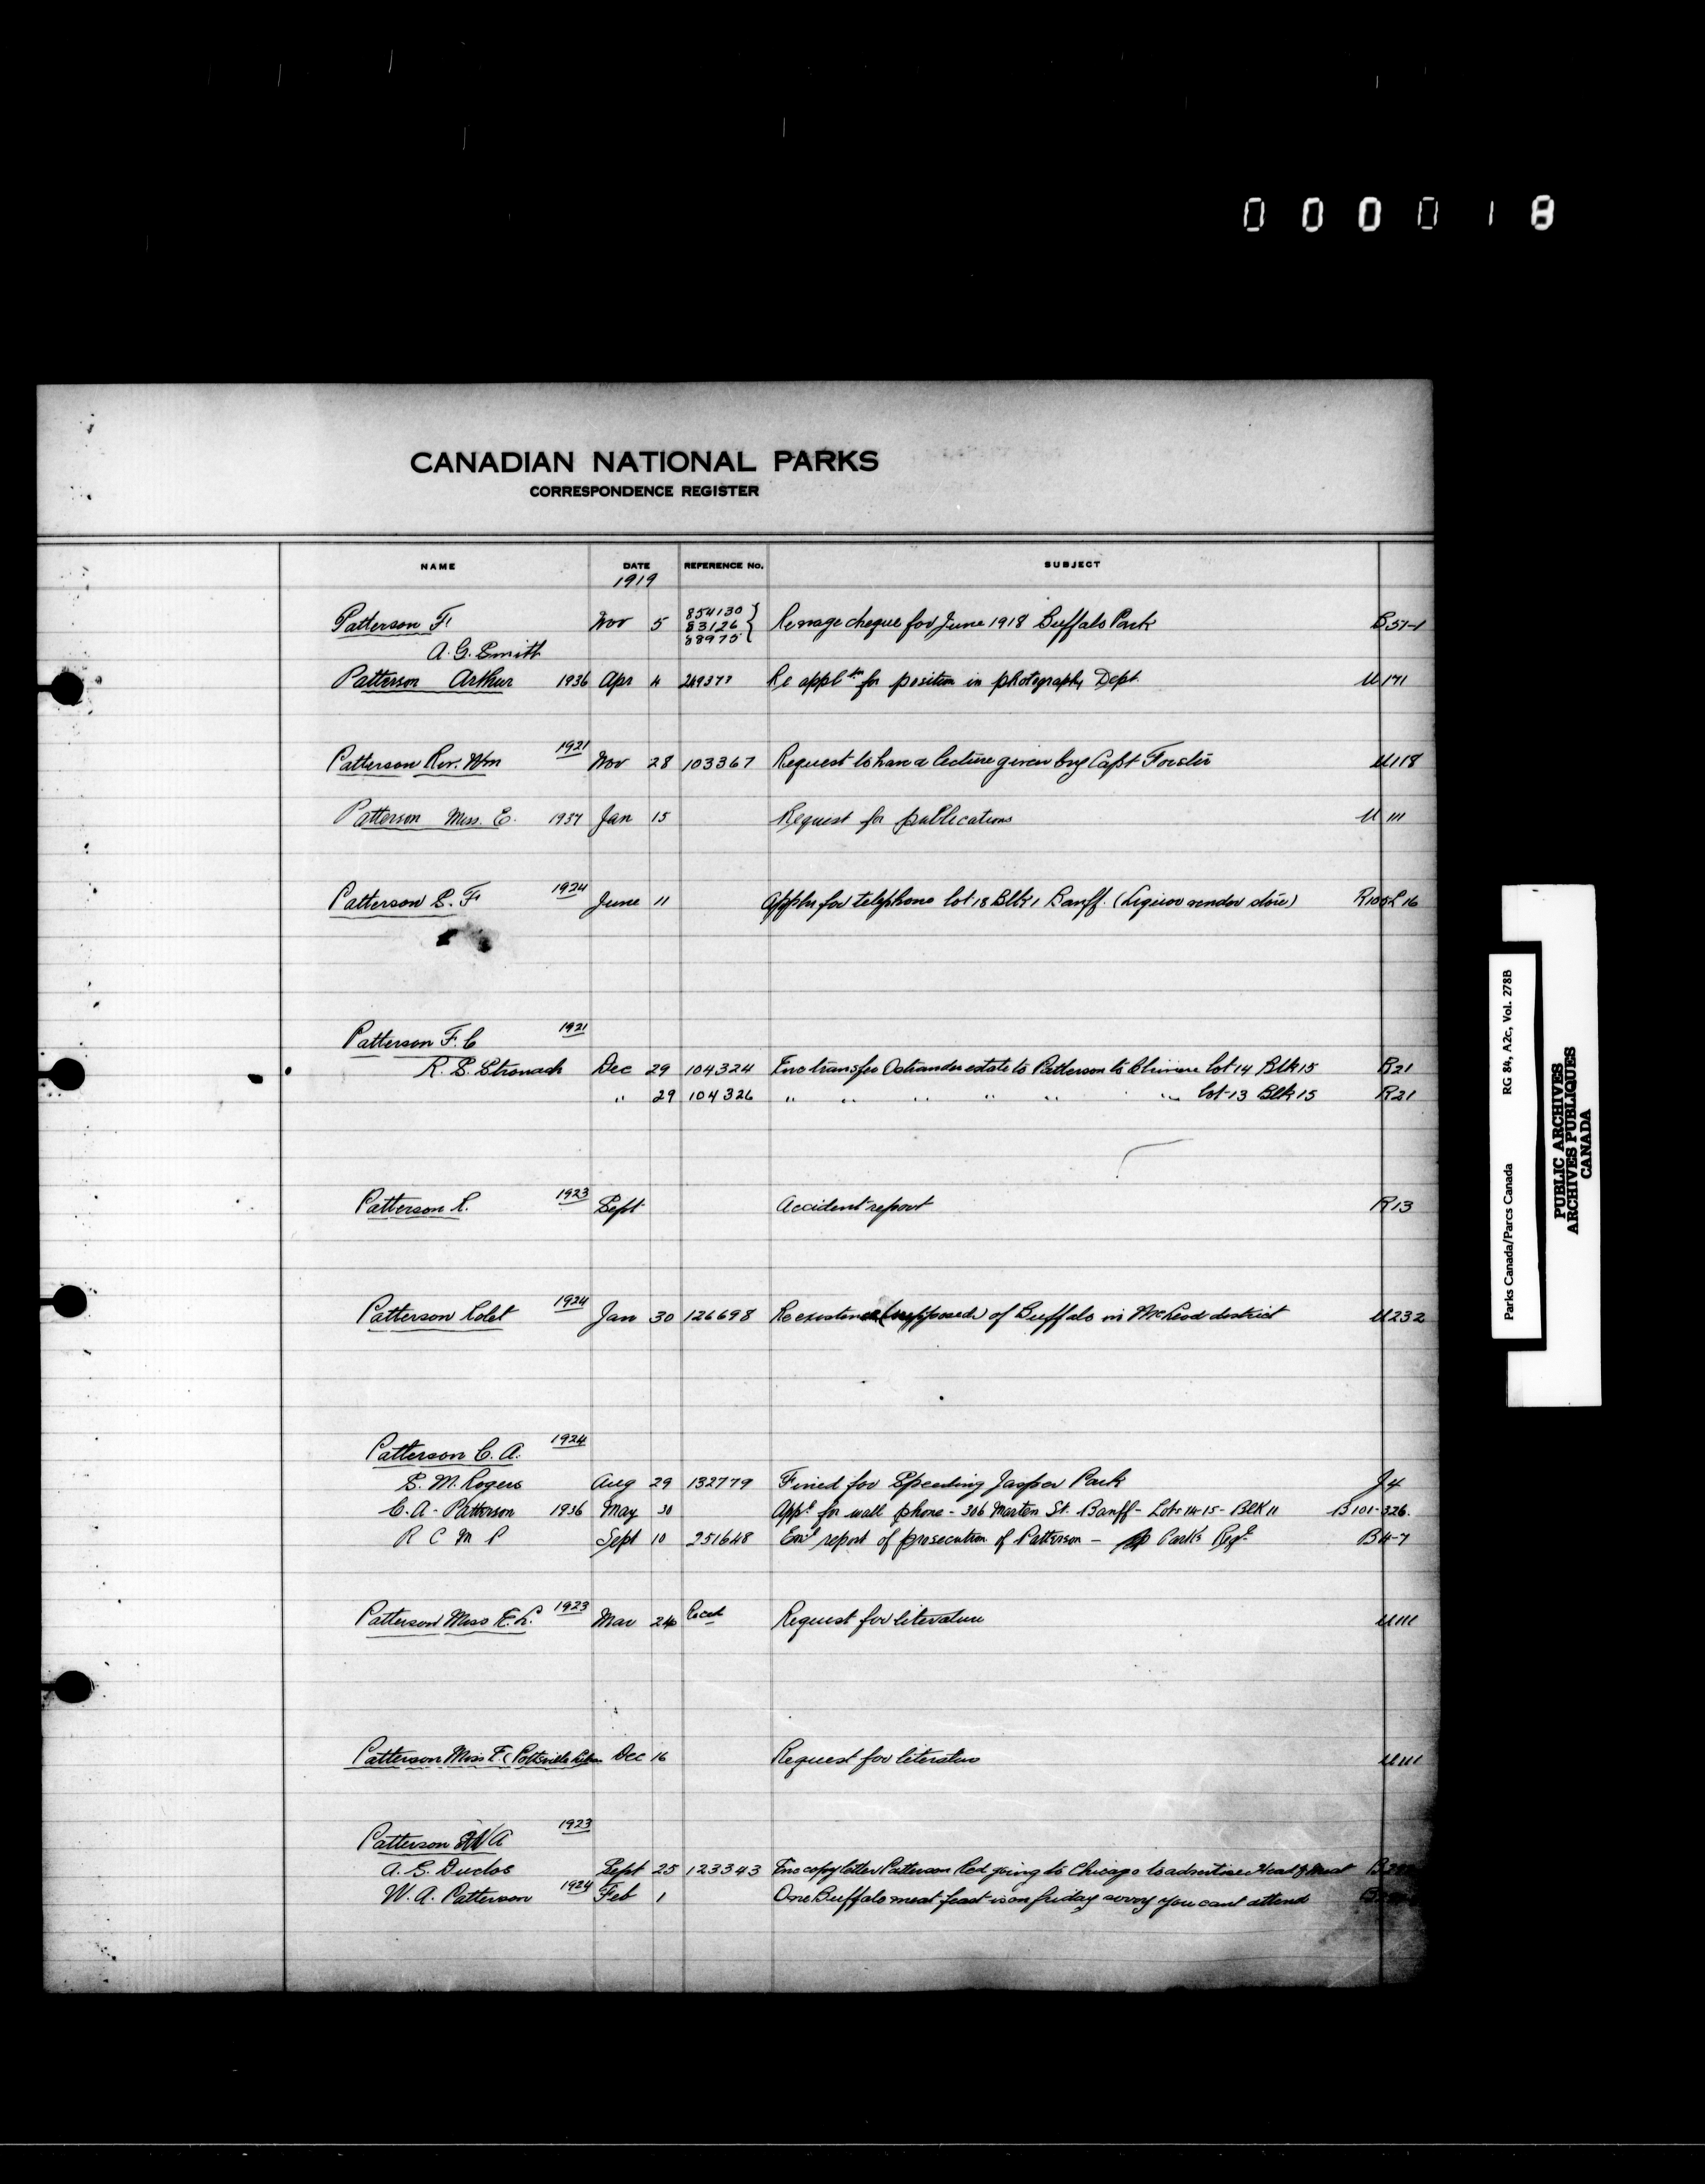 0 0 0 0 1 8
CANADIAN NATIONAL PARKS
CORRESPONDENCE REGISTER
NAME DATE REFERENCE No. SUBJECT
1919
Patterson F. Nov 5 854130 83126 88975 } Re wage cheque for June 1918 Buffalo Park B57-1
A. G. Smith
Patterson Arthur 1936 Apr 4 Re appltn for position in photography Dept. U171
Patterson Rev. Wm 1921 Nov 28 103367 Request to have a lecture given by Capt U118
Patterson Miss. E. 1937 Jan 15 Request for publications U111
Patterson S. F. 1924 June 11 Appln for telephone lot 18 Blk 1 Banff. (Liquor vendor store) R105L16
Patterson F. C 1921
R. S. Stronach Dec 29 104324 Enc transfer Ostrander estate to Patterson to lot 14 Blk 15 R21
" 29 104326 " " " " " " lot 13 Blk 15 R21
Patterson R. 1923 Sept Accident report R13
Patterson Robt 1924 Jan 30 126698 Re existence (supposed) of Buffalo in McLeod district U232
Patterson C. A. 1924
S. M. Rogers Aug 29 132779 Fined for Speeding Jasper Park J4
C. A. Patterson 1936 May 30 Appl for wall phone - 306 Marten St. Banff - Lots 14-15 - Blk 11 B101-326.
R C M P Sept 10 251648 Encl report of prosecution of Patterson - Parks Regs B4-7
Patterson Miss E. L. 1923 Mar 24 Recd Request for literature U111
Patterson Miss F. (Pottsville Dec 16 Request for literature U111
Patterson W A 1923
A. E. Duclos Sept 25 123343 Enc copy letter Patterson Red going to Chicago to advertise meat
W. A. Patterson 1924 Feb 1 One Buffalo meat feast is on friday sorry you cant attend
Parks Canada/Parcs Canada RG 84, A2c, Vol. 278B
PUBLIC ARCHIVES
ARCHIVES PUBLIQUES
CANADA